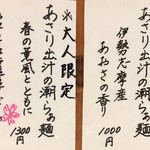 あさり出汁の潮らぁ麺
伊勢志摩産
あおさの香り
1000円
※大人限定
あさり出汁の潮らぁ麺
春の薫風とともに
1300円